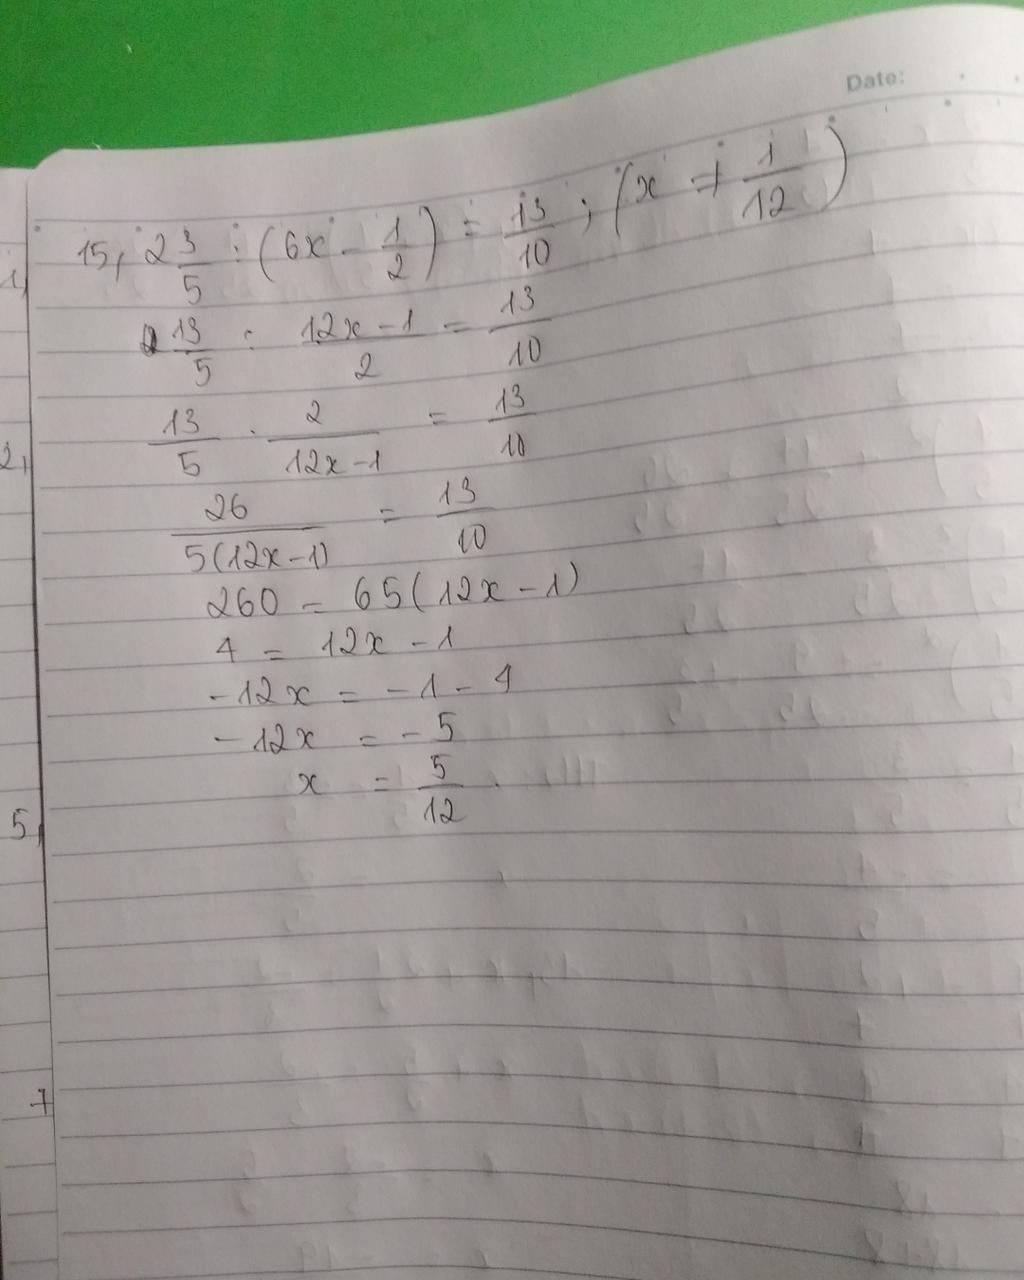 Date:
15, 2 3/5 : (6x - 1/2) = 13/10 ; (x ≠ 1/12)
13/5 : (12x - 1)/2 = 13/10
13/5 · 2/(12x - 1) = 13/10
26/(5(12x - 1)) = 13/10
260 = 65(12x - 1)
4 = 12x - 1
-12x = -1 - 4
-12x = -5
x = 5/12.
1,
2,
5,
7